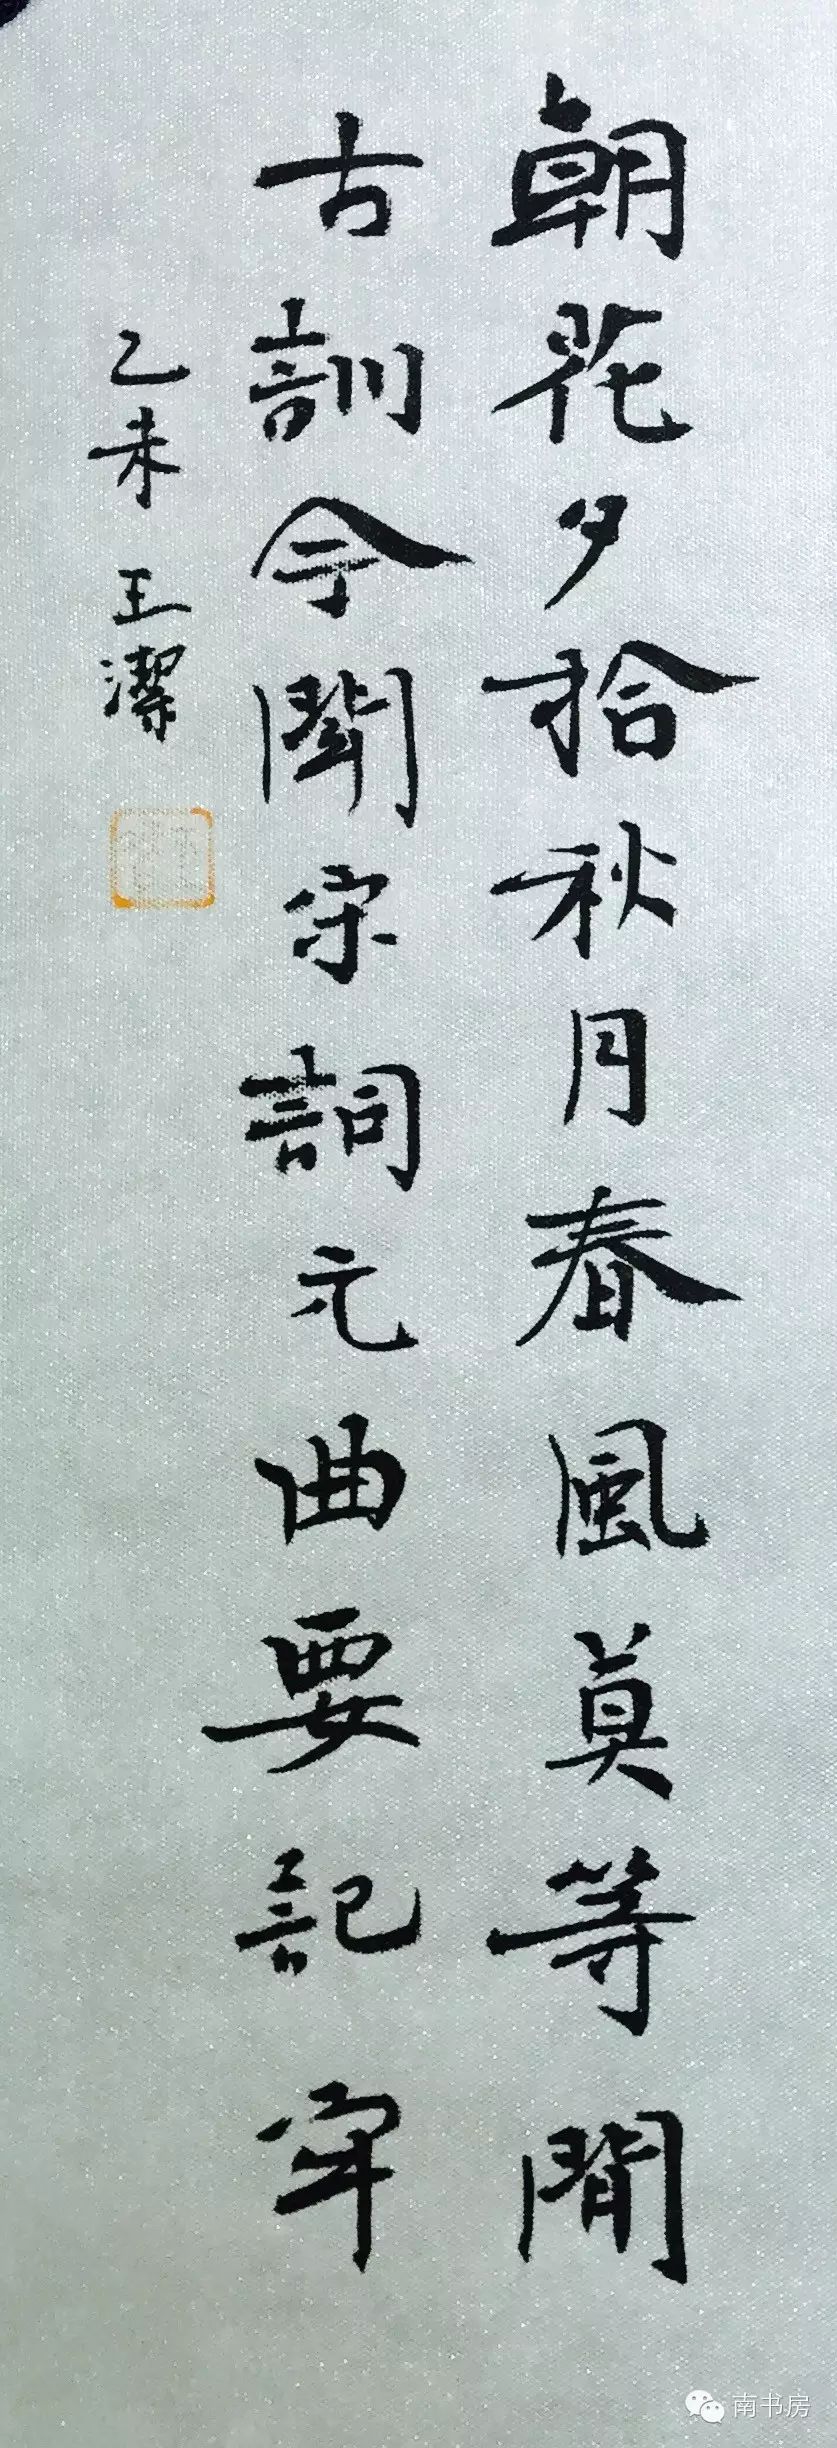 朝花夕拾秋月春風莫等閒
古訓今聞宋詞元曲要記牢
乙未 王潔
南书房